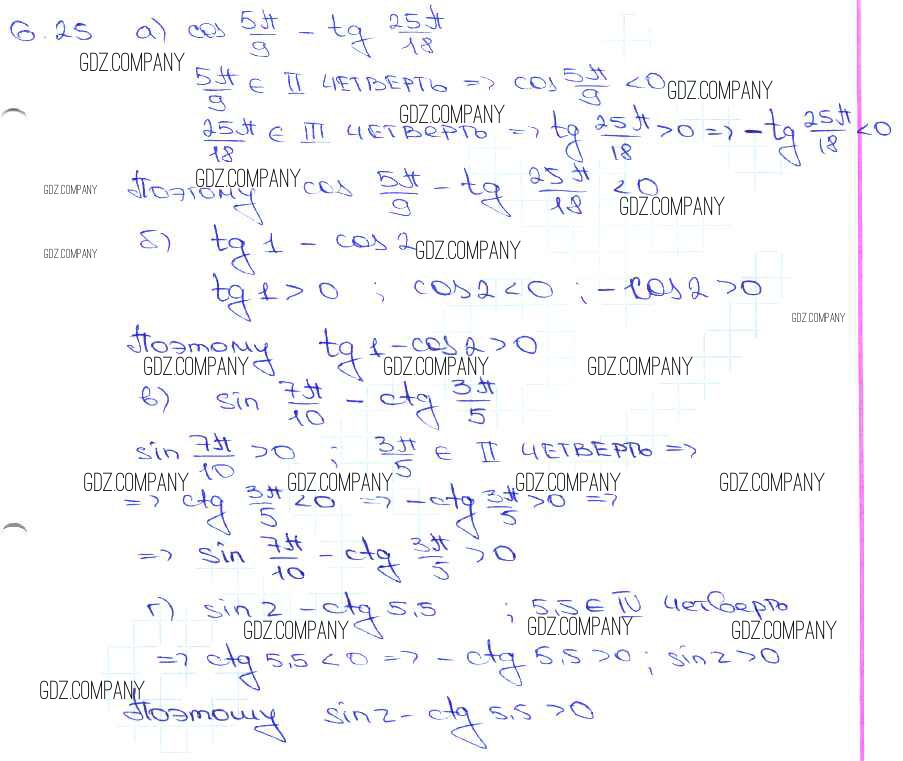 6.25 а) cos 5π/9 - tg 25π/18
GDZ.COMPANY
5π/9 ∈ II ЧЕТВЕРТЬ => cos 5π/9 <0
GDZ.COMPANY
GDZ.COMPANY
25π/18 ∈ III ЧЕТВЕРТЬ => tg 25π/18 >0 => -tg 25π/18 <0
GDZ.COMPANY
GDZ.COMPANY
Поэтому cos 5π/9 - tg 25π/18 <0
GDZ.COMPANY
б) tg 1 - cos 2
GDZ.COMPANY
GDZ.COMPANY
tg 1 > 0 ; cos 2 < 0 ; - cos 2 > 0
GDZ.COMPANY
Поэтому tg 1 - cos 2 > 0
GDZ.COMPANY GDZ.COMPANY GDZ.COMPANY
в) sin 7π/10 - ctg 3π/5
sin 7π/10 >0 ; 3π/5 ∈ II ЧЕТВЕРТЬ =>
GDZ.COMPANY GDZ.COMPANY GDZ.COMPANY GDZ.COMPANY
=> ctg 3π/5 <0 => -ctg 3π/5 >0 =>
=> sin 7π/10 - ctg 3π/5 >0
г) sin 2 - ctg 5,5 ; 5,5 ∈ IV четверть
GDZ.COMPANY GDZ.COMPANY GDZ.COMPANY
=> ctg 5,5 < 0 => - ctg 5,5 > 0 ; sin 2 > 0
GDZ.COMPANY
Поэтому sin 2 - ctg 5,5 > 0